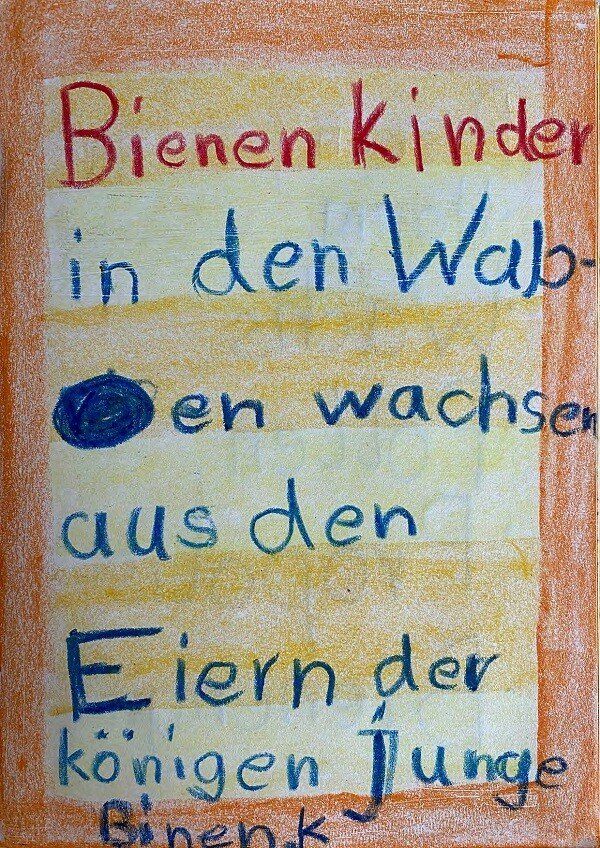 Bienen kinder
in den Wab-
en wachsen
aus den
Eiern der
königen junge
Binen.k